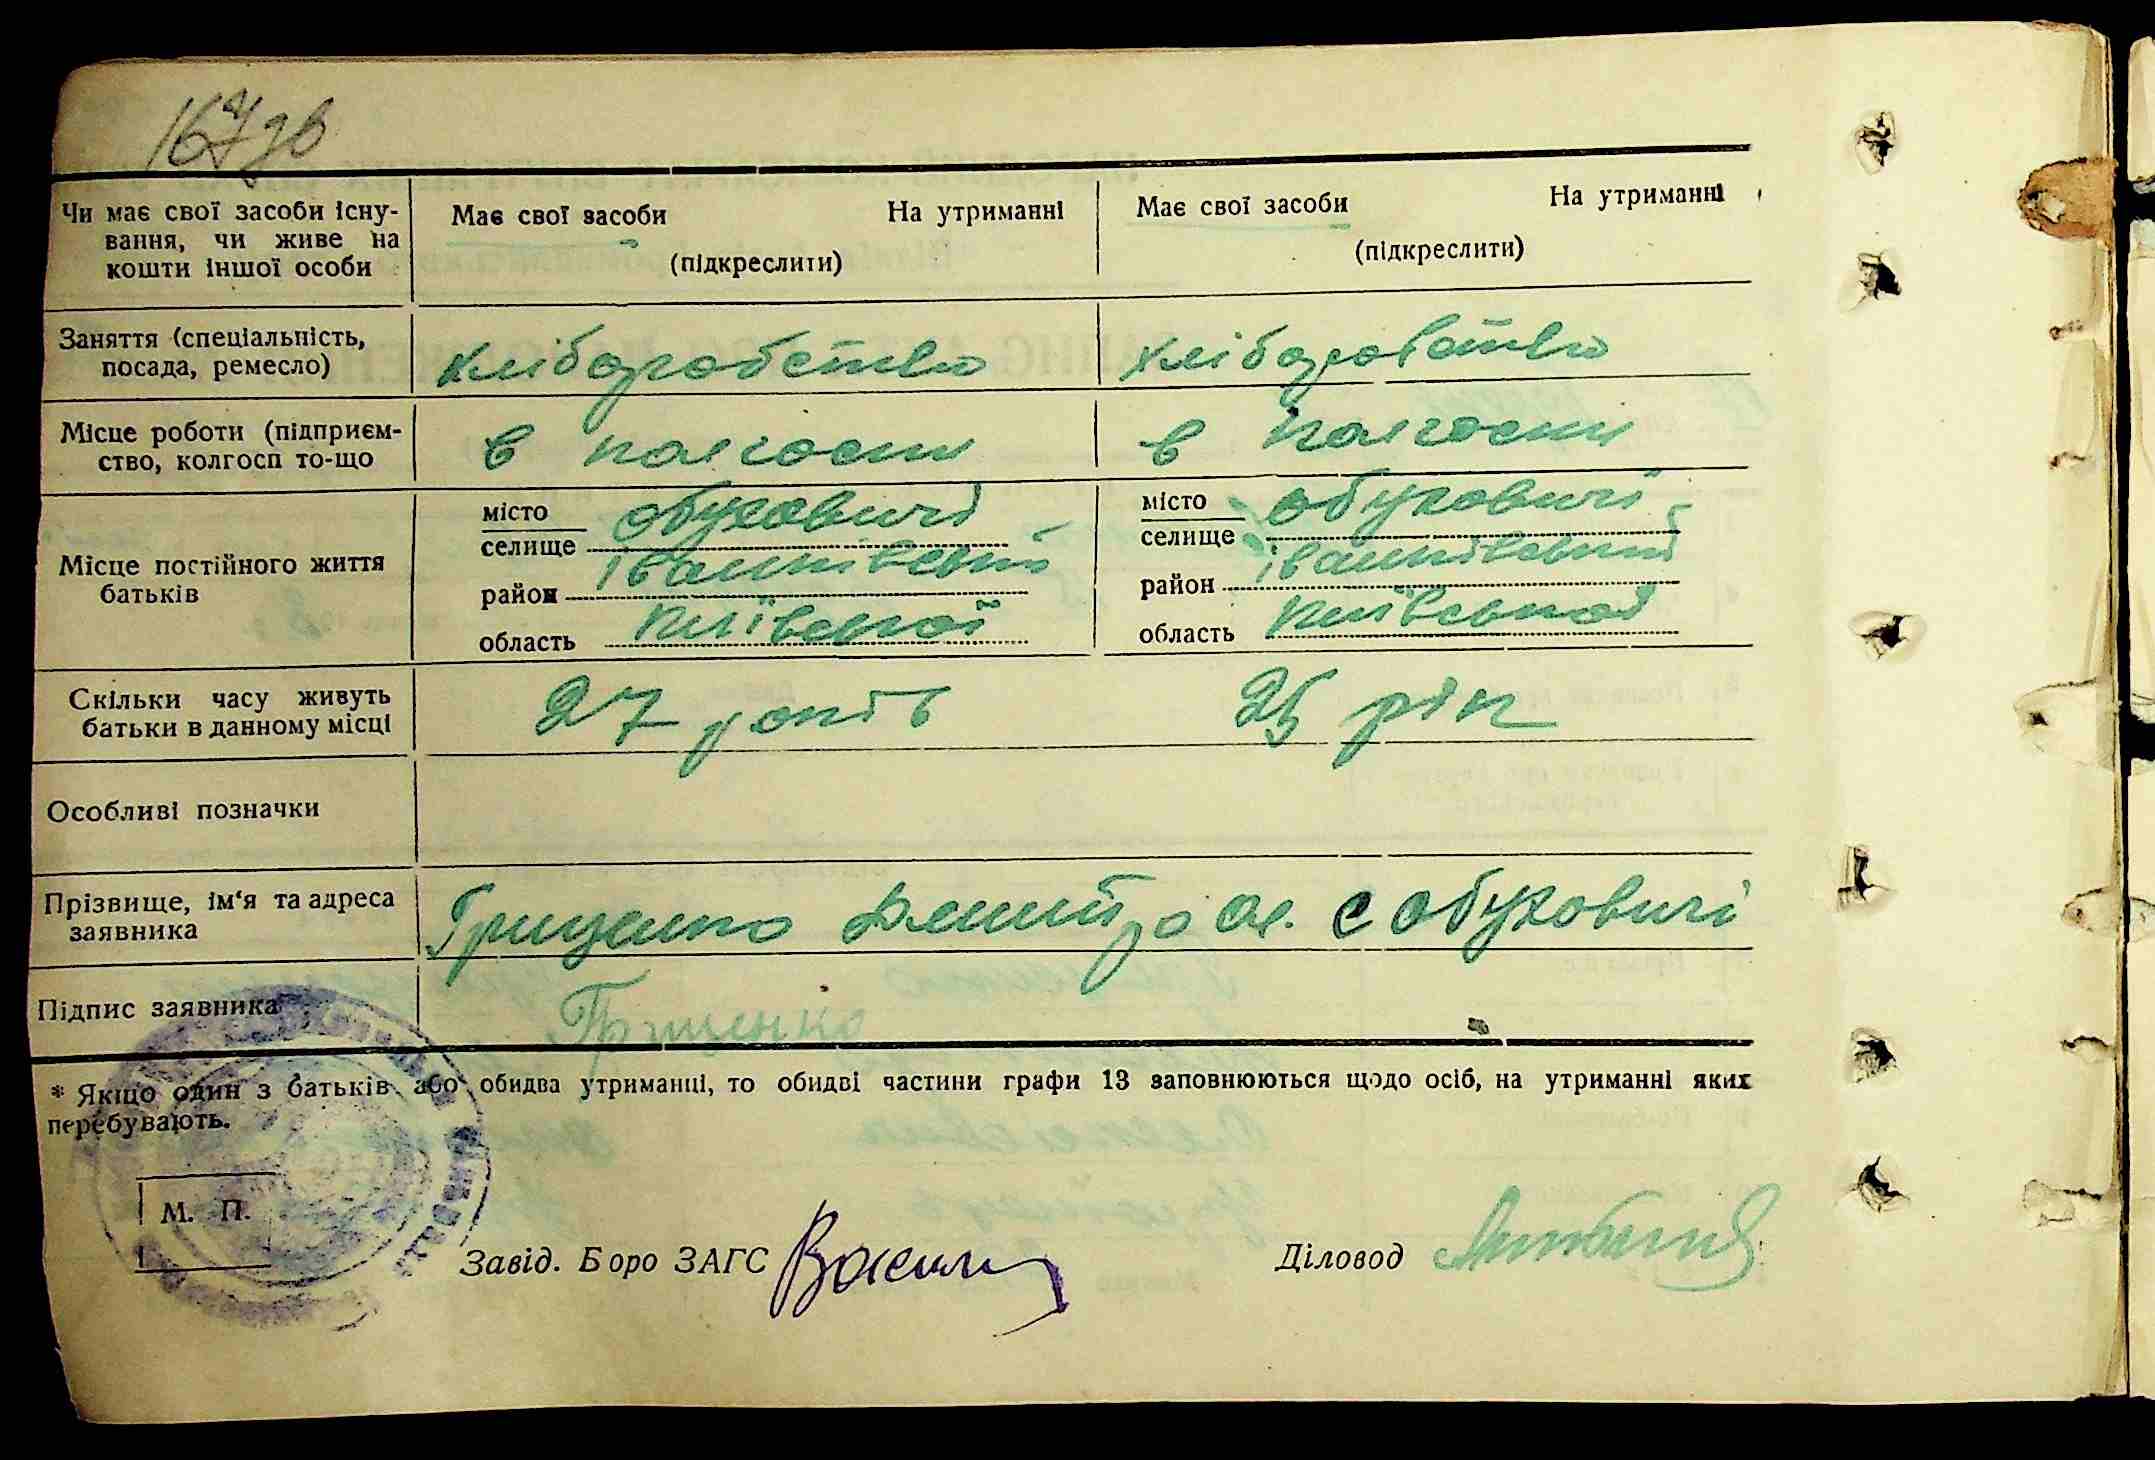 167зв
Чи має свої засоби існу-
вання, чи живе на
кошти іншої особи
Має свої засоби На утриманні
(підкреслити)
Має свої засоби На утриманні
(підкреслити)
Заняття (спеціальність,
посада, ремесло)
хліборобство
хліборобство
Місце роботи (підприєм-
ство, колгосп то-що
в колгоспі
в колгоспі
Місце постійного життя
батьків
місто
селище Обуховичі
район Іванківський
область Київської
місто
селище Обуховичі
район Іванківський
область Київської
Скільки часу живуть
батьки в данному місці
27 років
25 рік
Особливі позначки
Прізвище, ім‘я та адреса
заявника
Грищенко Дмитро Ол. с Обуховичі
Підпис заявника
Грищенко
* Якщо один з батьків або обидва утриманці, то обидві частини графи 13 заповнюються щодо осіб, на утриманні яких
перебувають.
М. П.
Завід. Боро ЗАГС
Діловод